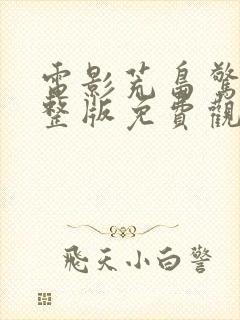 電影荒島驚
整版免費觀
飛天小白警